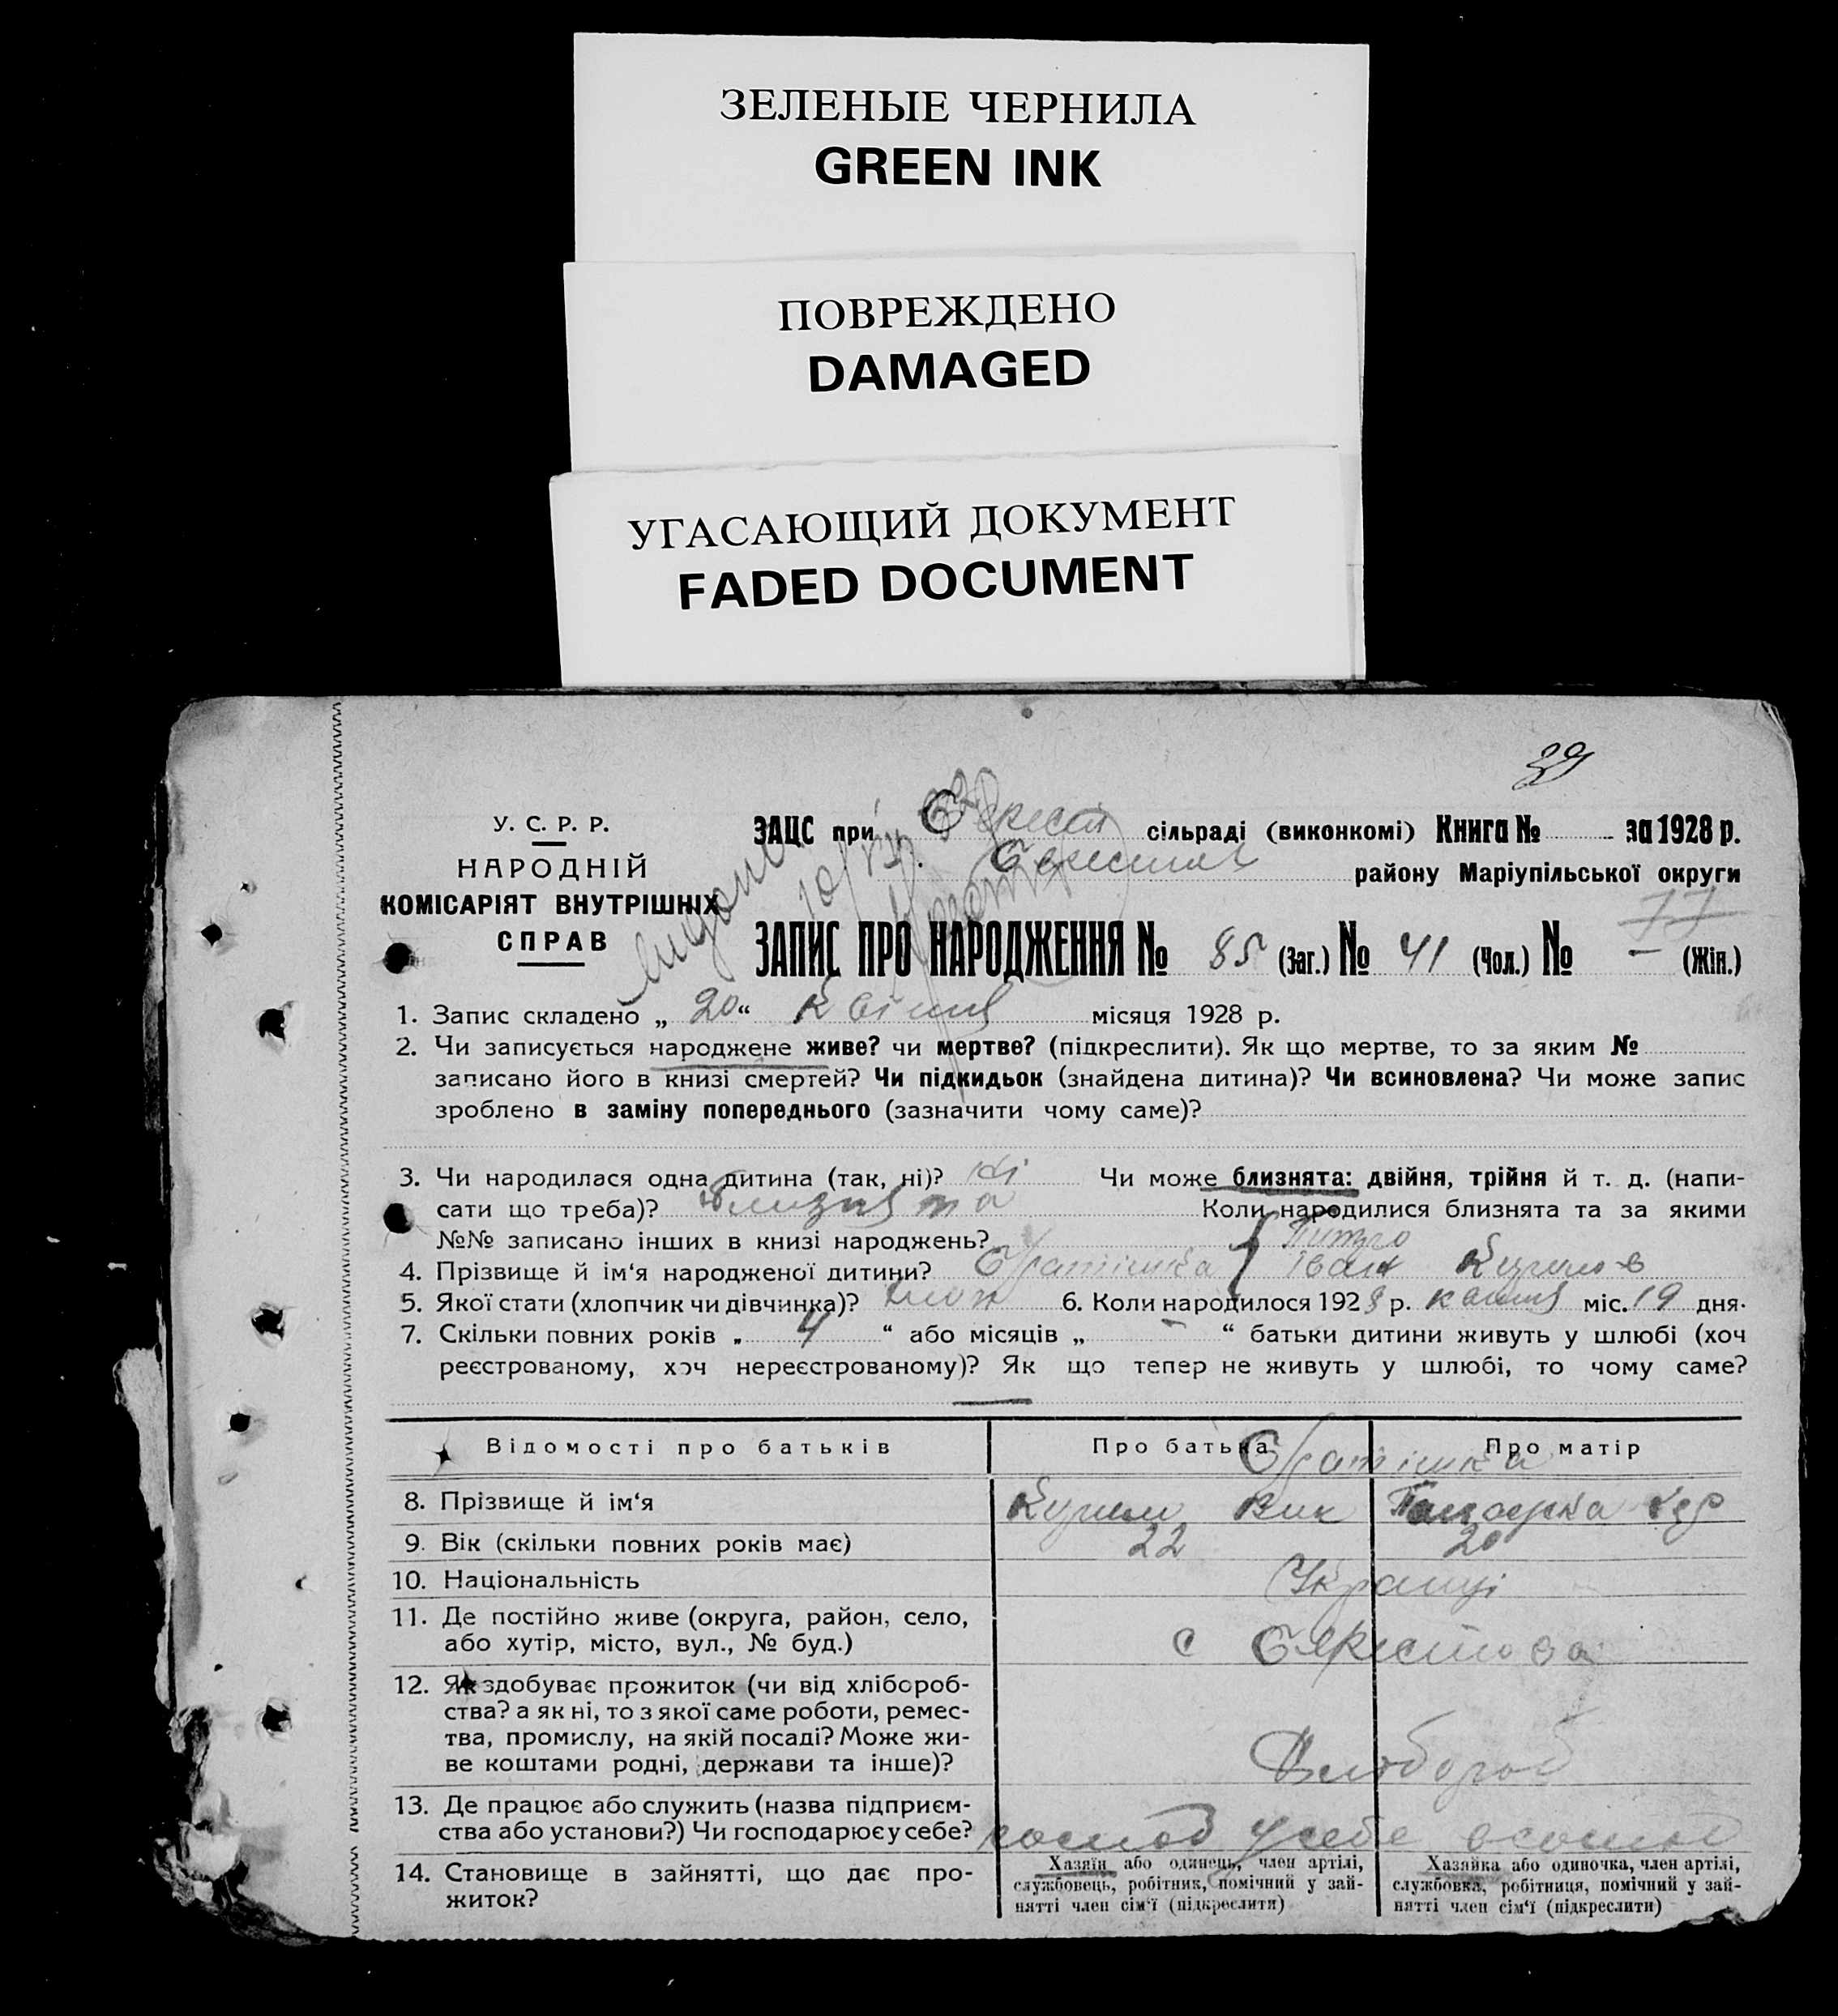 ЗЕЛЕНЫЕ ЧЕРНИЛА
GREEN INK
ПОВРЕЖДЕНО
DAMAGED
УГАСАЮЩИЙ ДОКУМЕНТ
FADED DOCUMENT
39
У. С. Р. Р.
НАРОДНІЙ
КОМІСАРІЯТ ВНУТРІШНІХ
СПРАВ
ЗАЦС при сільраді (виконкомі) Книга № за 1928 р.
району Маріупільської округи
77
ЗАПИС ПРО НАРОДЖЕННЯ № 85 (Заг.) № 41 (Чол.) № — (Жін.)
1. Запис складено „ 20 “ Квітня місяця 1928 р.
2. Чи записується народжене живе? чи мертве? (підкреслити). Як що мертве, то за яким №
записано його в книзі смертей? Чи підкидьок (знайдена дитина)? Чи всиновлена? Чи може запис
зроблено в заміну попереднього (зазначити чому саме)?
3. Чи народилася одна дитина (так, ні)? ні Чи може близнята: двійня, трійня й т. д. (напи-
сати що треба)? близнята Коли народилися близнята та за якими
№№ записано інших в книзі народжень?
4. Прізвище й ім‘я народженої дитини? Іван
5. Якої статі (хлопчик чи дівчинка)? 6. Коли народилося 1928 р. квітня міс. 19 дня.
7. Скільки повних років „ 4 “ або місяців „ - “ батьки дитини живуть у шлюбі (хоч
реєстрованому, хоч нереєстрованому)? Як що тепер не живуть у шлюбі, то чому саме?
Відомості про батьків Про батька Про матір
8. Прізвище й ім‘я
9. Вік (скільки повних років має) 22 20
10. Національність Українці
11. Де постійно живе (округа, район, село,
або хутір, місто, вул., № буд.) с Берестова
12. Як здобуває прожиток (чи від хлібороб-
ства? а як ні, то з якої саме роботи, ремес-
тва, промислу, на якій посаді? Може жи-
ве коштами родні, держави та інше)? Хлібороб
13. Де працює або служить (назва підприєм-
ства або установи?) Чи господарює у себе? у себе
14. Становище в зайнятті, що дає про-
житок?
Хазяїн або одинець, член артілі,
службовець, робітник, помічний у зай-
нятті член сім‘ї (підкреслити)
Хазяйка або одиночка, член артілі,
службовка, робітниця, помічний у зай-
нятті член сім‘ї (підкреслити)